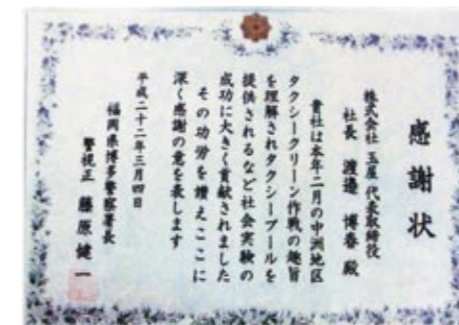 感謝状
株式会社 玉屋 代表取締役
社長 渡邉 博春 殿
貴社は本年二月の中洲地区
タクシークリーン作戦の趣旨
を理解されタクシープールを
提供されるなど社会実験の
成功に大きく貢献されました
その功労を讃えここに
深く感謝の意を表します
平成二十二年三月四日
福岡県博多警察署長
警視正 藤原 健一